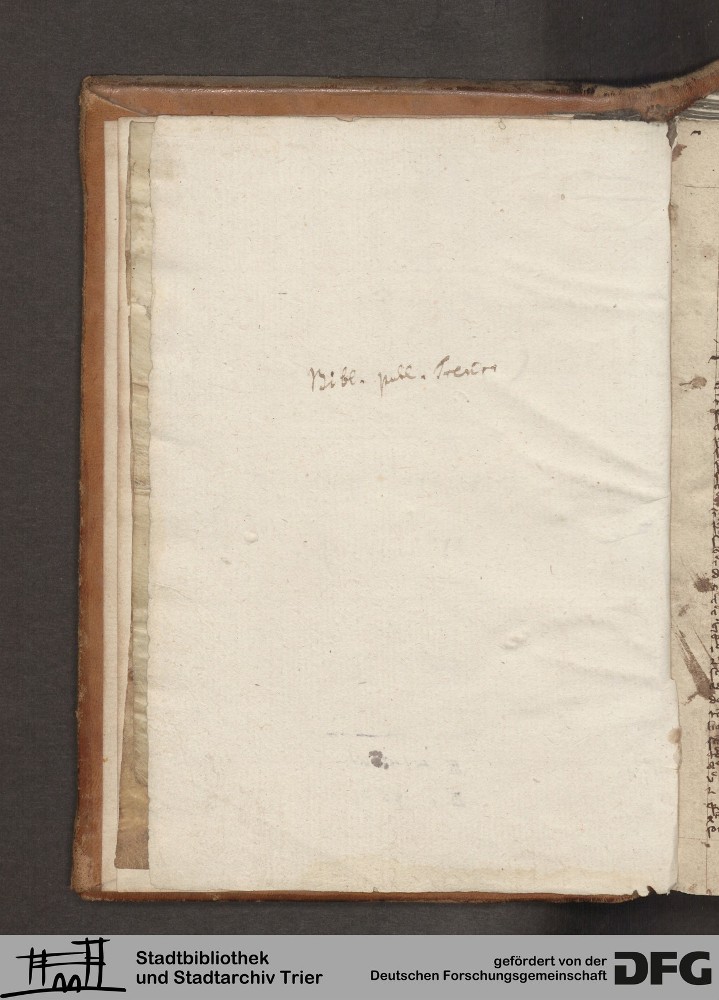 Bibl. publ. Trevir
Stadtbibliothek
und Stadtarchiv Trier
gefördert von der
Deutschen Forschungsgemeinschaft
DFG